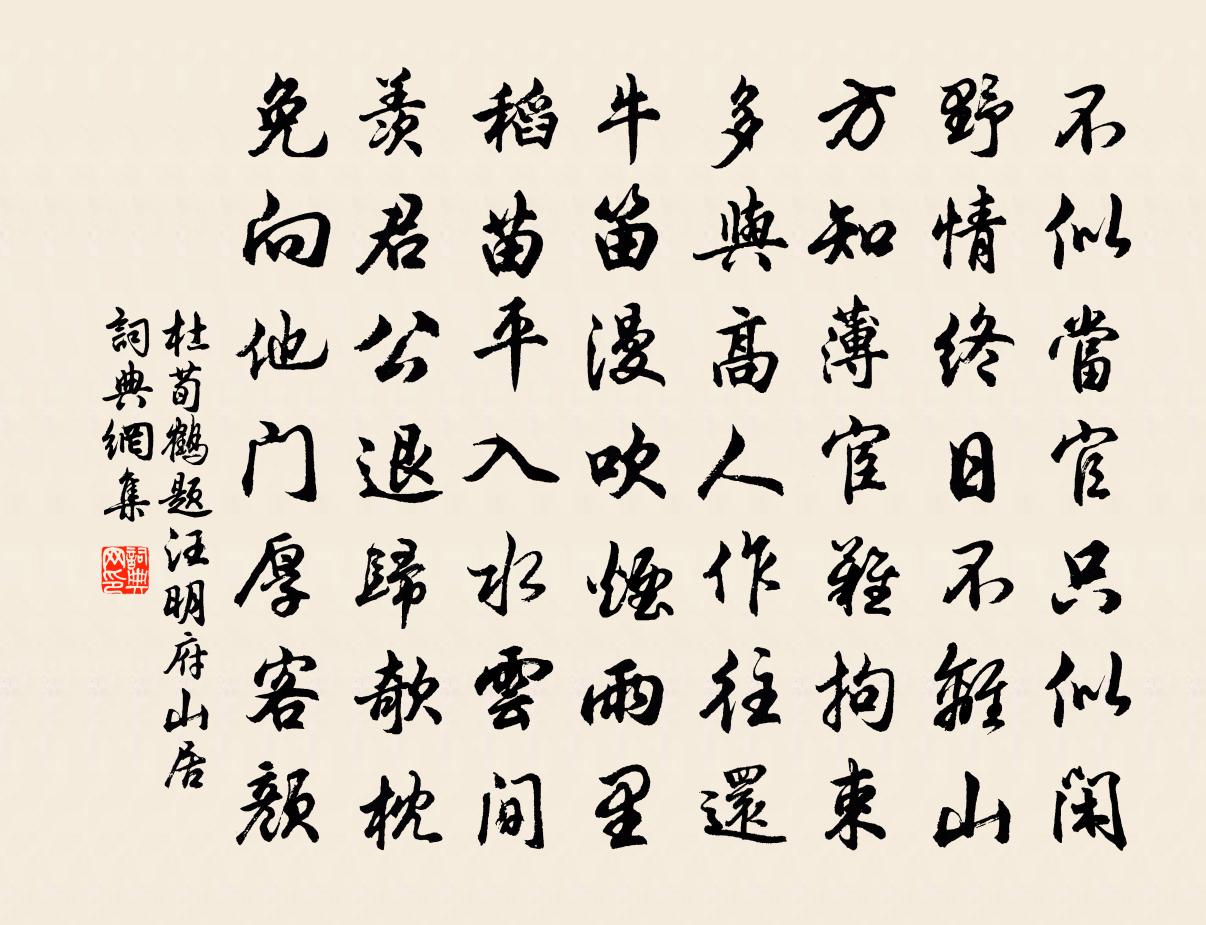 不似當官只似閑
野情終日不離山
方知薄宦難拘束
多與高人作往還
牛笛漫吹煙雨里
稻苗平入水雲間
羨君公退歸欹枕
免向他门厚客顏
杜荀鶴题汪明府山居
詞典網集
詞典网印